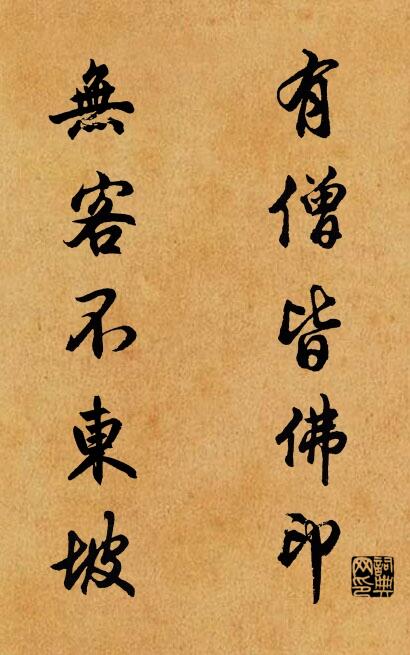 有僧皆佛印
無客不東坡
詞典網印